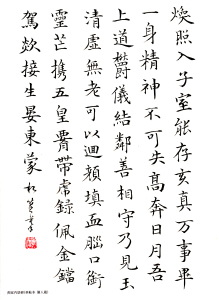 煥照入子室能存玄真萬事畢
一身精神不可失高奔日月吾
上道鬱儀結鄰善相守乃見玉
清虛無老可以迴顏填血腦口銜
靈芒携五皇腰帶虎籙佩金鐺
駕欻接生晏東蒙